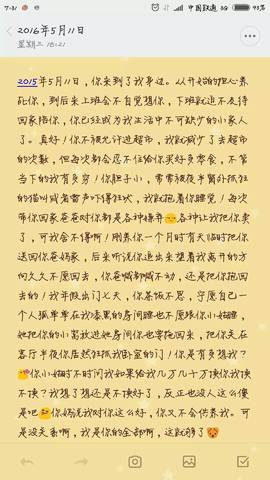 7:31
中国联通 3G 93%
2016年5月11日
星期三 18:21
2015年5月11日，你来到了我身边。从开始的担心养
死你，到后来上班会不自觉想你，下班就迫不及待
回家陪你，你已经成为我生活中不可缺少的小家人
了。真好！你不被允许进超市，我就减少了去超市
的次数，但每次都会忍不住给你买好多零食，不管
当下的我有多穷！你胆子小，常常被夜半窗外抓狂
的猫叫或者雷声吓得狂吠，我就抱着你睡觉！每次
带你回家爸爸对你都是各种嫌弃😔各种让我把你卖
了，可我舍不得啊！刚养你一个月时有天临时把你
送回你爸妈家，后来听说你追出来望着我离开的方
向久久不愿回去，你爸喊都喊不动，还是把你抱回
去的！我年假出门七天，你茶饭不思，宁愿自己一
个人孤零零在我漆黑的房间睡也不愿跟你小姑睡，
她把你的小窝放进她房间你也要拖回来，把你关在
客厅半夜你居然狂抓我卧室的门！你是有多想我？
😘你小姑时不时问我如果给我几万几十万换你我换
不换？我想了想还是不换好了，反正也没人这么傻
是吧😘你妈说我对你这么好，你又不会传养我。可
是没关系啊，我是你的全部啊，这就够了🐶